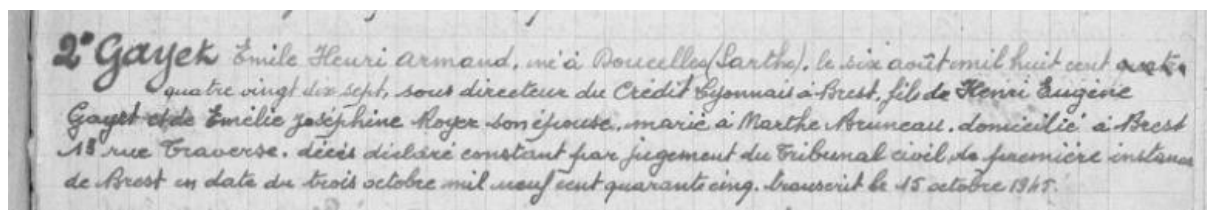 2° Gayet Emile Henri Armand, né à Doucelles (Sarthe), le six août mil huit cent
quatre vingt dix sept, sous directeur du Crédit Lyonnais à Brest, fils de Henri Eugène
Gayet et de Emélie Joséphine Royer son épouse, marié à Marthe Bruneau, domicilié à Brest
18 rue Traverse. décès déclaré constant par jugement du Tribunal civil de première instance
de Brest en date du trois octobre mil neuf cent quarante cinq. transcrit le 15 octobre 1945.